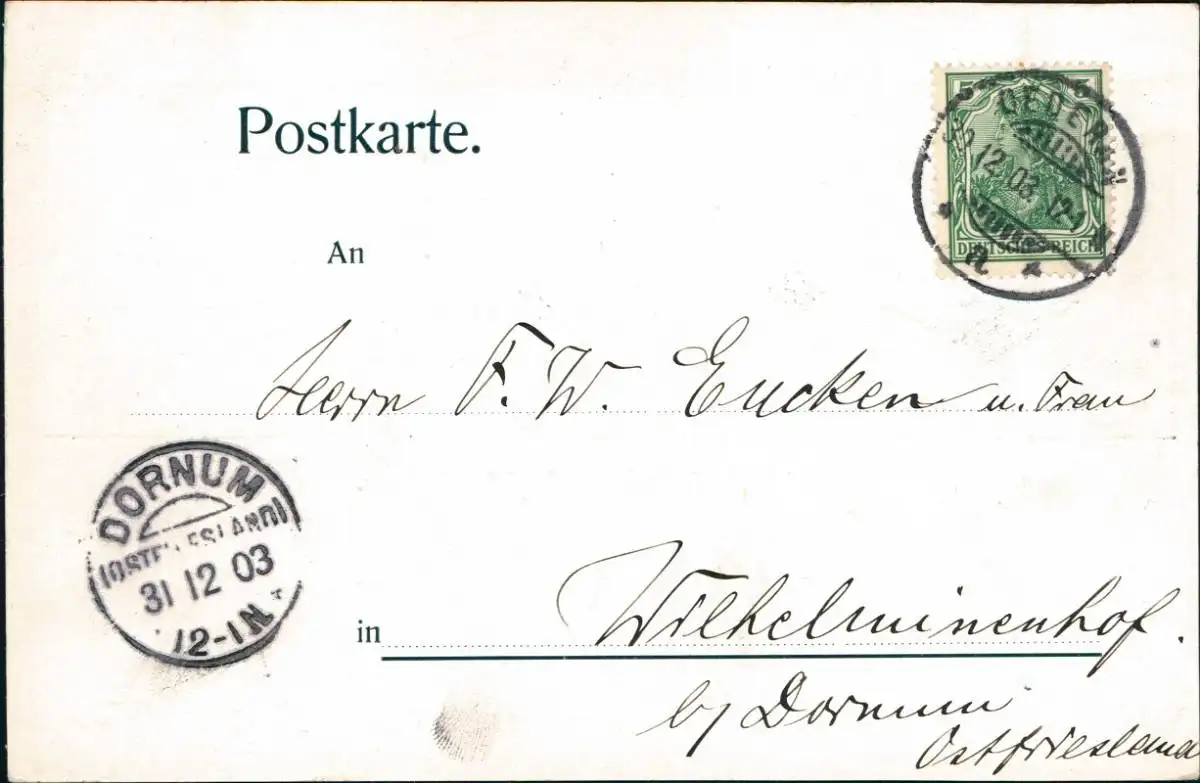 Postkarte.
5 5
OEDERAN
30 12 03 12-1 N
DEUTSCHES REICH
a.
An
Herrn F. W. Eucken u. Frau
DORNUM
(OSTFRIESLAND)
31 12 03
12-1 N.
in Wilhelminenhof.
by Dornum
Ostfriesland